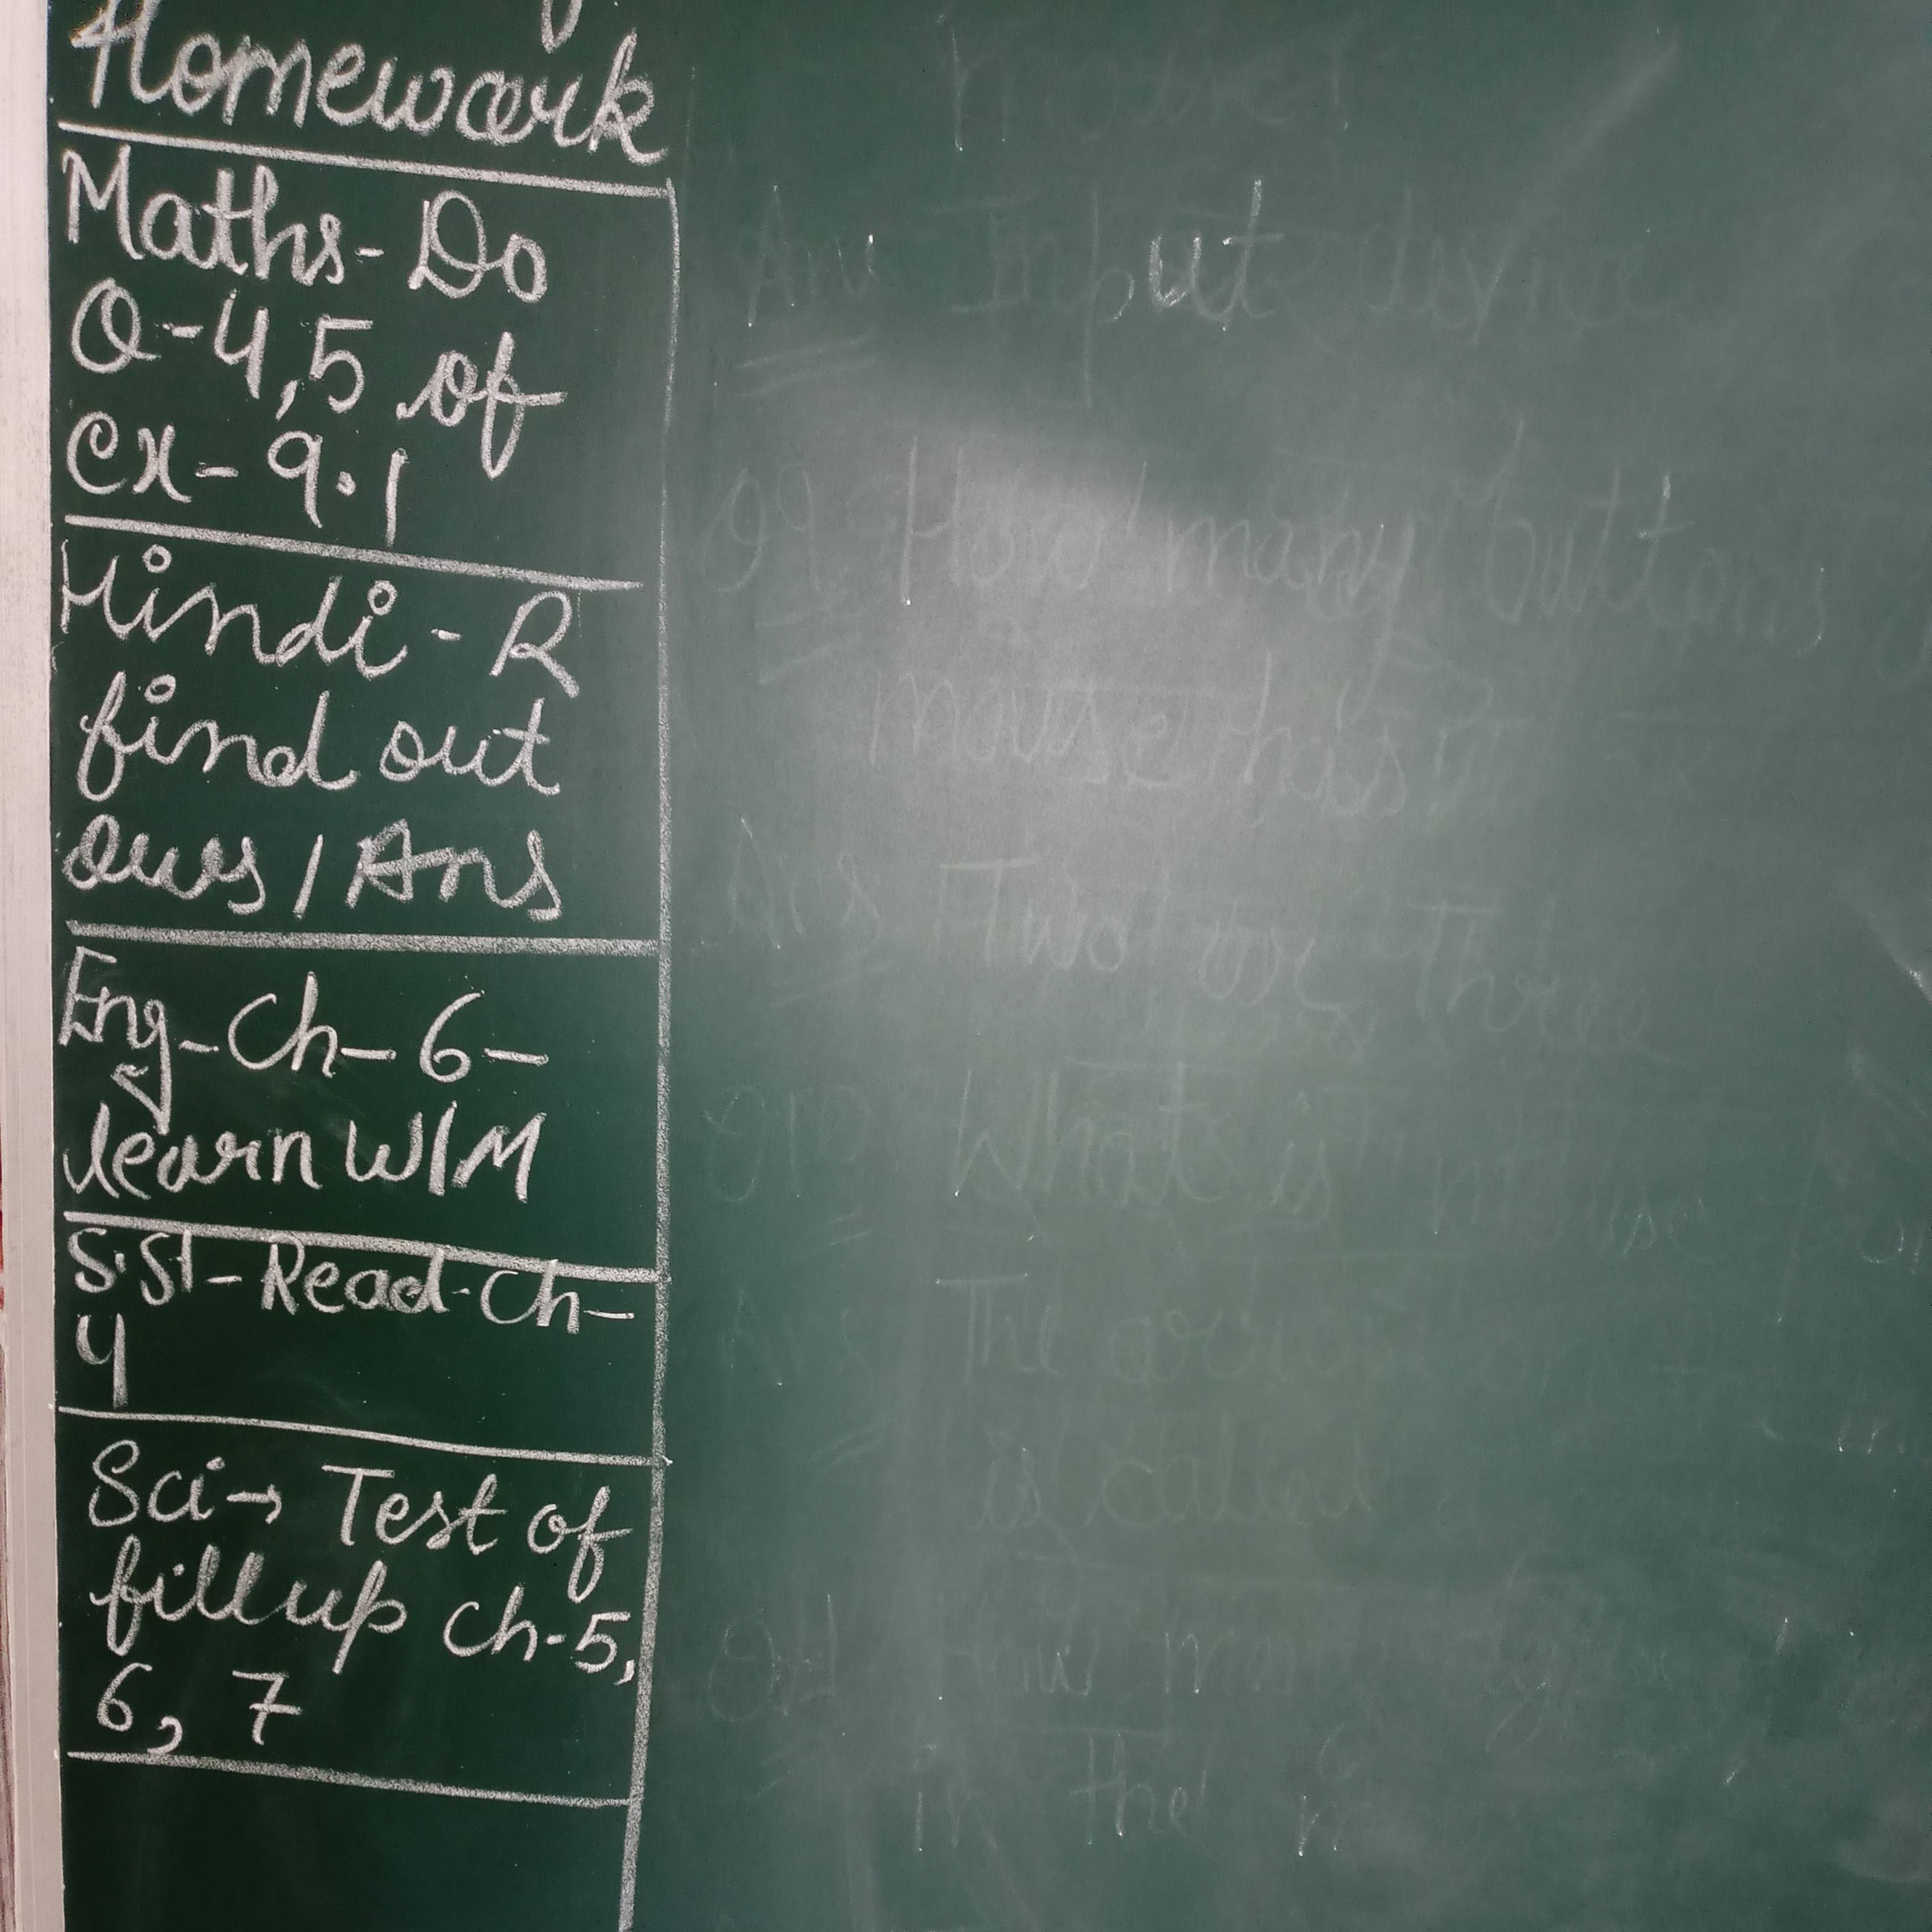 Homework
Maths - Do
Q-4,5 of
ex- 9.1
Hindi - R
find out
Ques / Ans
Eng - Ch - 6 -
learn W/M
S.St - Read - Ch -
4
Sci → Test of
fillup Ch-5,
6, 7
Input device
Q9 How many buttons
mouse has?
Ans Two or Three
What is mouse
Ans The
is called
How many
in the